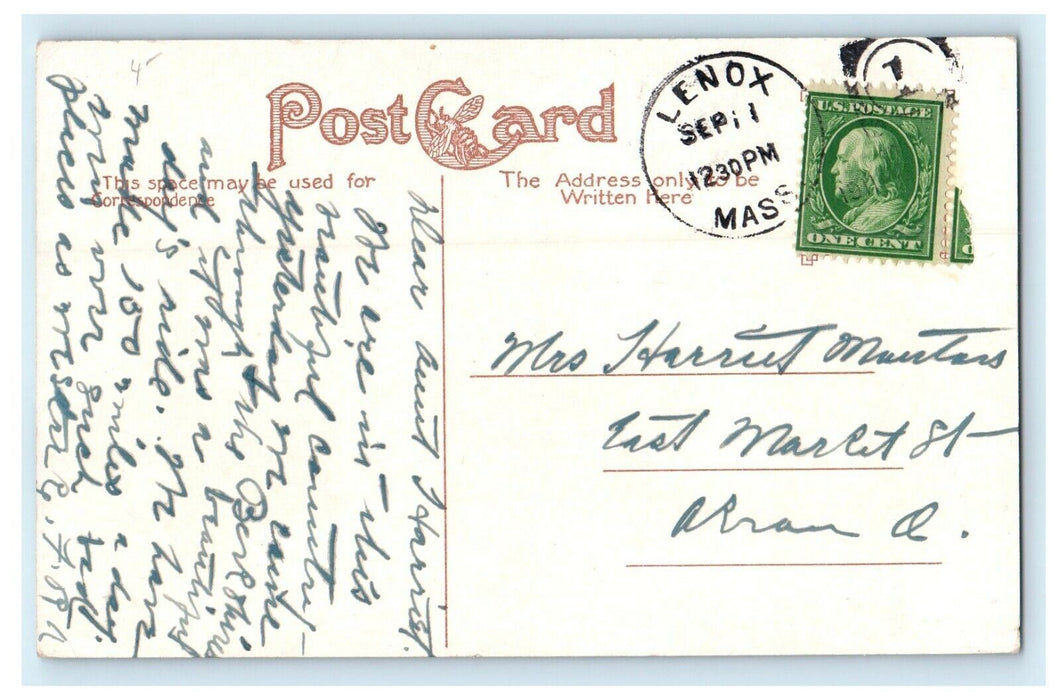 Post Card
This space may be used for
Correspondence
The Address only to be
Written Here
LENOX
SEP 11
12 30 PM
MASS
1
U.S. POSTAGE
ONE CENT
Mrs Harriet
East Market St
Akron O.
Dear Aunt Harriet.
We are in this
beautiful country
yesterday we came
through the Berkshire
and it was a beautiful
day's ride. We have
made 150 miles a day.